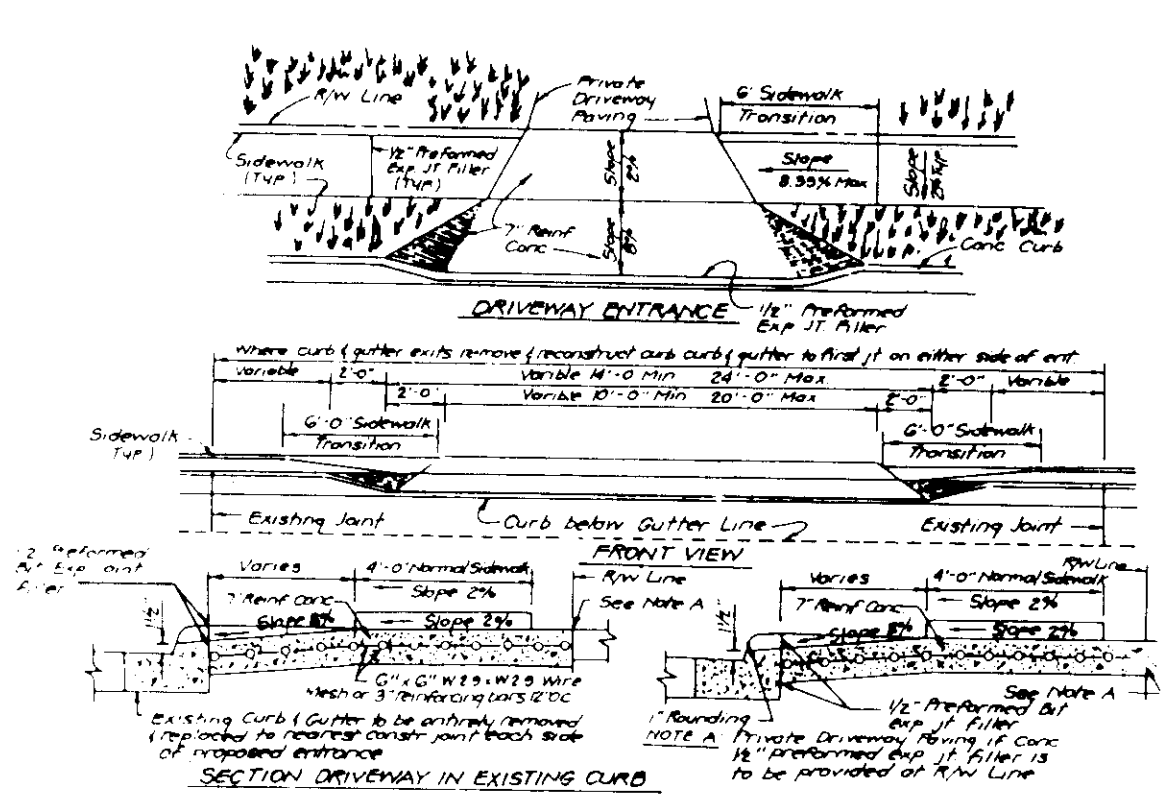 R/W Line
Private
Driveway
Paving
6' Sidewalk
Transition
Sidewalk
(Typ.)
1/2" Preformed
Exp. JT. Filler
(TYP)
Slope
2%
Slope
8.33% Max
Slope
2% Typ
7" Reinf
Conc
Slope
8%
Conc Curb
DRIVEWAY ENTRANCE
1/2" Preformed
Exp. JT. Filler
Where curb & gutter exits remove & reconstruct curb curb & gutter to first jt on either side of ent.
Variable 2'-0" Varible 14'-0 Min 24'-0" Max 2'-0" Varible
2'-0" Varible 10'-0" Min 20'-0" Max 2'-0"
6'-0" Sidewalk
Transition
6'-0" Sidewalk
Transition
Sidewalk
Typ)
Existing Joint
Curb below Gutter Line
Existing Joint
FRONT VIEW
1/2 Preformed
Bit Exp Joint
filler
Varies
4'-0" Normal Sidewalk
Slope 2%
R/W Line
7" Reinf Conc
See Note A
Slope 8%
Slope 2%
1 1/2
6" x 6" W29 x W29 Wire
Mesh or 3" reinforcing bars 12" OC
Existing Curb & Gutter to be entirely removed
& replaced to nearest constr joint each side
of proposed entrance
SECTION DRIVEWAY IN EXISTING CURB
R/W Line
Varies
4'-0" Normal Sidewalk
Slope 2%
7" Reinf Conc
Slope 8%
Slope 2%
1 1/2
See Note A
1" Rounding
1/2" Preformed Bit
exp jt filler
NOTE A: Private Driveway Paving if Conc
1/2" preformed exp. jt. filler is
to be provided at R/W Line